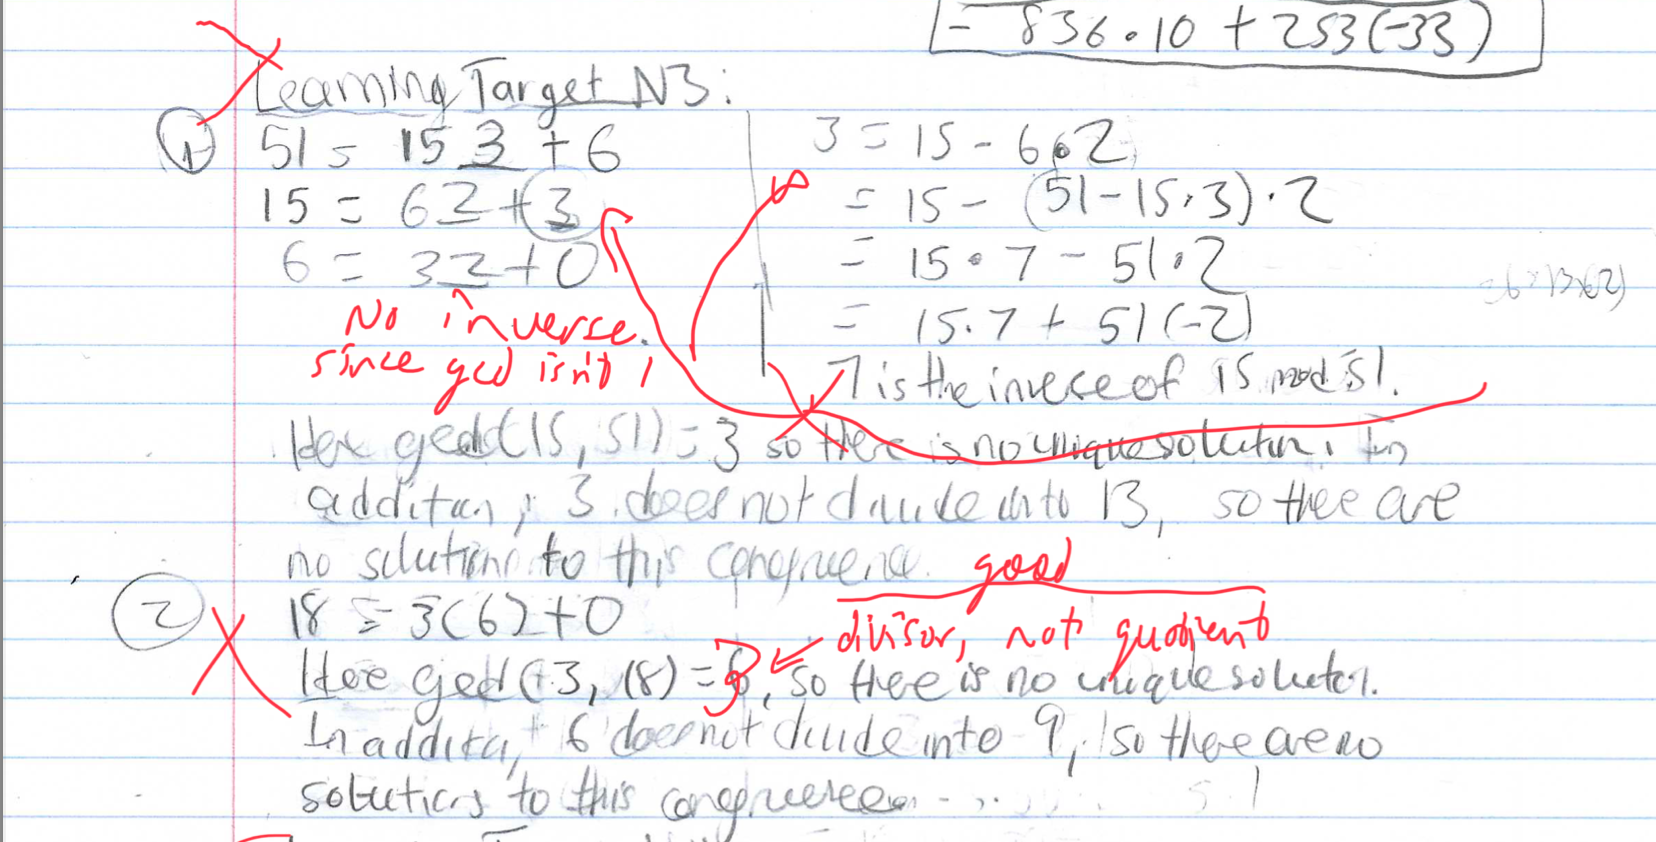 = 836·10 + 253(-33)
Learning Target N3:
① 51 = 15 3 + 6
15 = 6 2 + 3
6 = 3 2 + 0
No inverse.
since gcd isn't 1
3 = 15 - 6·2
= 15 - (51-15·3)·2
= 15·7 - 51·2
= 15·7 + 51(-2)
7 is the inverse of 15 mod 51.
Here gcd(15, 51) = 3 so there is no unique solution. In
addition, 3 does not divide into 13, so there are
no solutions to this congruence.
good
② 18 = 3(6)+0
divisor, not quotient
Here gcd(3, 18) = 3, so there is no unique solution.
In addition, 6 does not divide into 9, so there are no
solutions to this congruence